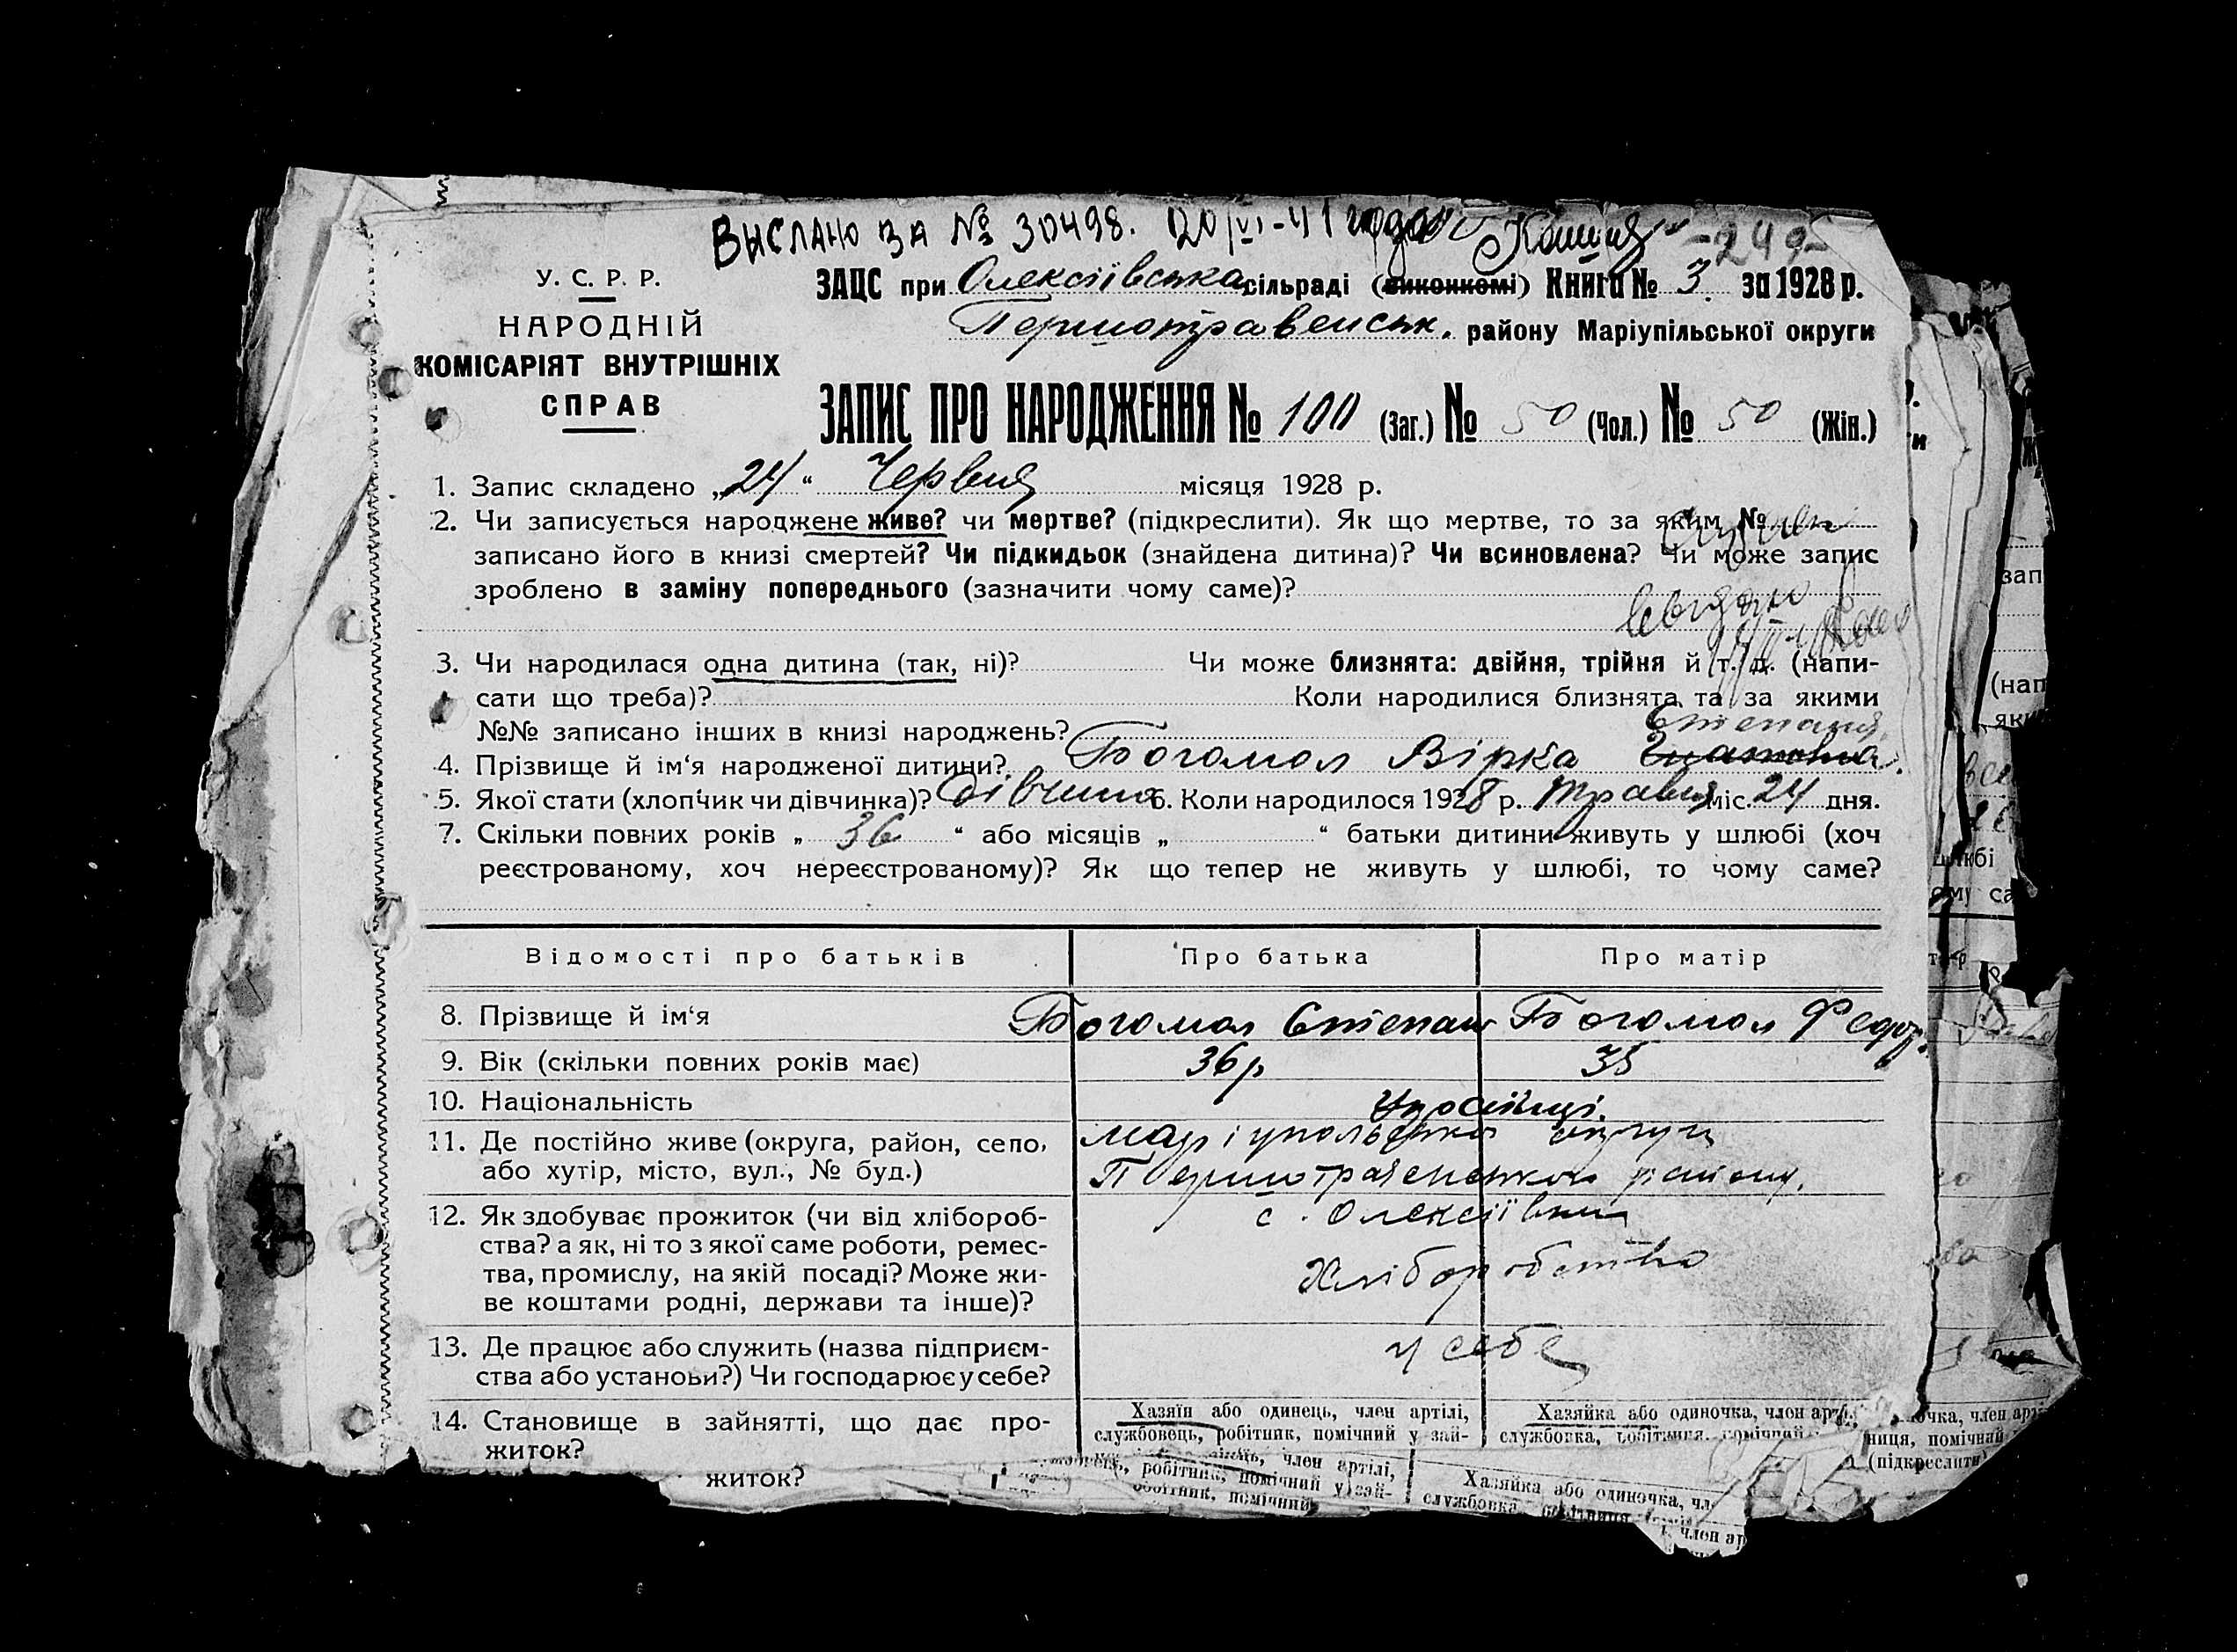 Выслано за № 30498. 20/VI-41 года
-249-
У. С. Р. Р.
НАРОДНІЙ
КОМІСАРІЯТ ВНУТРІШНІХ
СПРАВ
ЗАЦС при Олексіївська сільраді (виконкомі) Книга № 3. за 1928 р.
Першотравенськ. району Маріупільської округи
ЗАПИС ПРО НАРОДЖЕННЯ № 100 (Заг.) № 50 (Чол.) № 50 (Жін.)
1. Запис складено „24“ Червня місяця 1928 р.
2. Чи записується народжене живе? чи мертве? (підкреслити). Як що мертве, то за яким №
записано його в книзі смертей? Чи підкидьок (знайдена дитина)? Чи всиновлена? Чи може запис
зроблено в заміну попереднього (зазначити чому саме)?
3. Чи народилася одна дитина (так, ні)? Чи може близнята: двійня, трійня й т. д. (напи-
сати що треба)? Коли народилися близнята та за якими
№№ записано інших в книзі народжень?
Степания
4. Прізвище й ім‘я народженої дитини? Богомол Вірка
5. Якої стати (хлопчик чи дівчинка)? Дівчина 6. Коли народилося 1928 р. травня міс. 24 дня.
7. Скільки повних років „ 36 “ або місяців „ “ батьки дитини живуть у шлюбі (хоч
реєстрованому, хоч нереєстрованому)? Як що тепер не живуть у шлюбі, то чому саме?
Відомості про батьків Про батька Про матір
8. Прізвище й ім‘я Богомол Степан Богомол Федор.
9. Вік (скільки повних років має) 36 р 35
10. Національність Українці.
11. Де постійно живе (округа, район, село, Маріупольська округи
або хутір, місто, вул., № буд.) Першотравенського району,
с. Олексіївки
12. Як здобуває прожиток (чи від хлібороб-
ства? а як, ні то з якої саме роботи, ремес-
тва, промислу, на якій посаді? Може жи- Хліборобство
ве коштами родні, держави та інше)?
13. Де працює або служить (назва підприєм- у себе
ства або установи?) Чи господарює у себе?
14. Становище в зайнятті, що дає про- Хазяїн або одинець, член артілі, Хазяйка або одиночка, член арт
житок? службовець, робітник, помічний у зай- службовка, робітниця, помічний
житок?